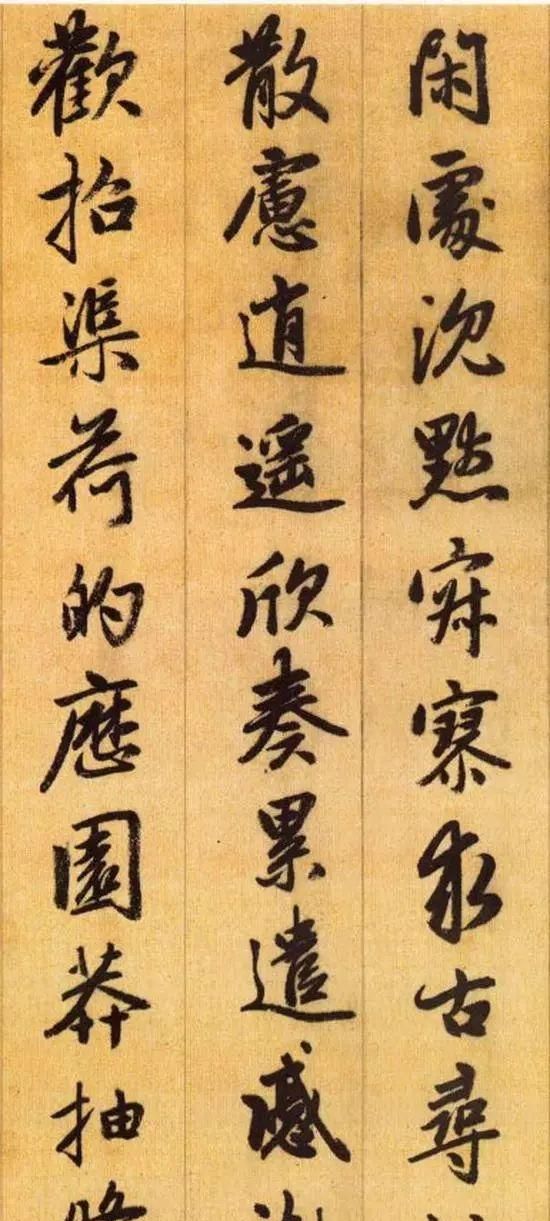 閑處沉默寂寥求古尋
散慮逍遥欣奏累遣慼
歡招渠荷的歷園莽抽